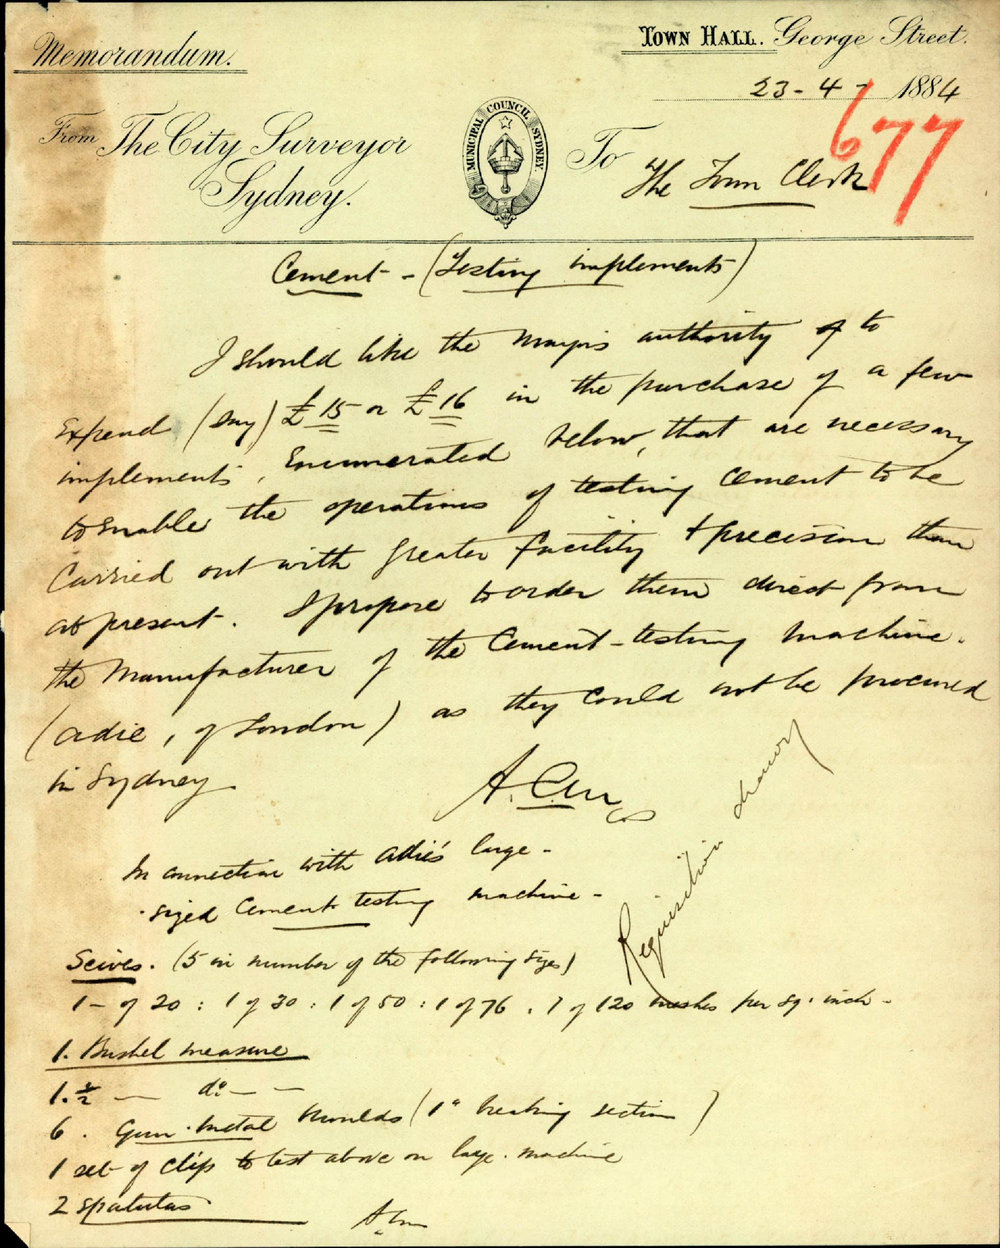 Memorandum.
TOWN HALL. George Street.
23-4- 1884
677
From The City Surveyor
Sydney.
MUNICIPAL COUNCIL SYDNEY.
To The Town Clerk
Cement - (Testing implements)
I should like the Mayor's authority to
Expend (say) £15 or £16 in the purchase of a few
implements, Enumerated below, that are necessary
to Enable the operations of testing Cement to be
Carried out with greater facility & precision than
at present. I propose to order them direct from
the Manufacturer of the Cement-testing Machine.
(Adie, of London) as they could not be procured
in Sydney
A. C.
Requisition drawn
In connection with Adie's large-
sized Cement testing machine-
Seives. (5 in number of the following sizes)
1- of 20 : 1 of 30 : 1 of 50 : 1 of 76 . 1 of 120 meshes per sq. inch-
1. Bushel measure
1. ½ — do — —
6. Gun-metal Moulds (1" breaking section)
1 set of Clips to test above on large machine
2 Spatulas